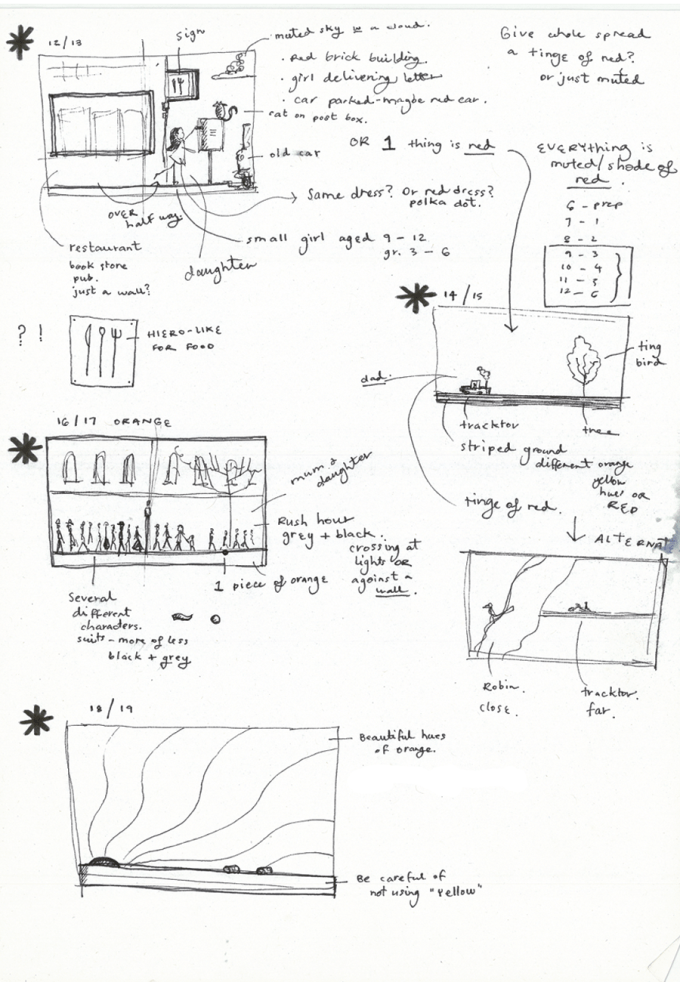 12/13
sign
muted sky w a cloud.
• Red brick building.
• girl delivering letter
• car parked-maybe red car.
cat on post box.
old car
Give whole spread
a tinge of red?
or just muted
OR 1 thing is red
EVERYthing is
muted/shade of
red.
6 - prep
7 - 1
8 - 2
9 - 3
10 - 4
11 - 5
12 - 6
OVER
half way.
Same dress? Or red dress?
polka dot.
small girl aged 9 - 12
gr. 3 - 6
restaurant
book store
pub.
just a wall?
daughter
? !
HIERO-LIKE
FOR FOOD
14/15
dad.
ting
bird
tracktor
tree
striped ground
different orange
yellow
hues OR
RED
tinge of red.
ALTERNAT
Robin.
close.
tracktor.
far.
16/17 ORANGE
mum &
daughter
Rush hour
grey + black.
crossing at
lights OR
against a
wall.
1 piece of orange
Several
different
characters.
suits - more of less
black + grey
18/19
Beautiful hues
of orange.
Be careful of
not using "yellow"